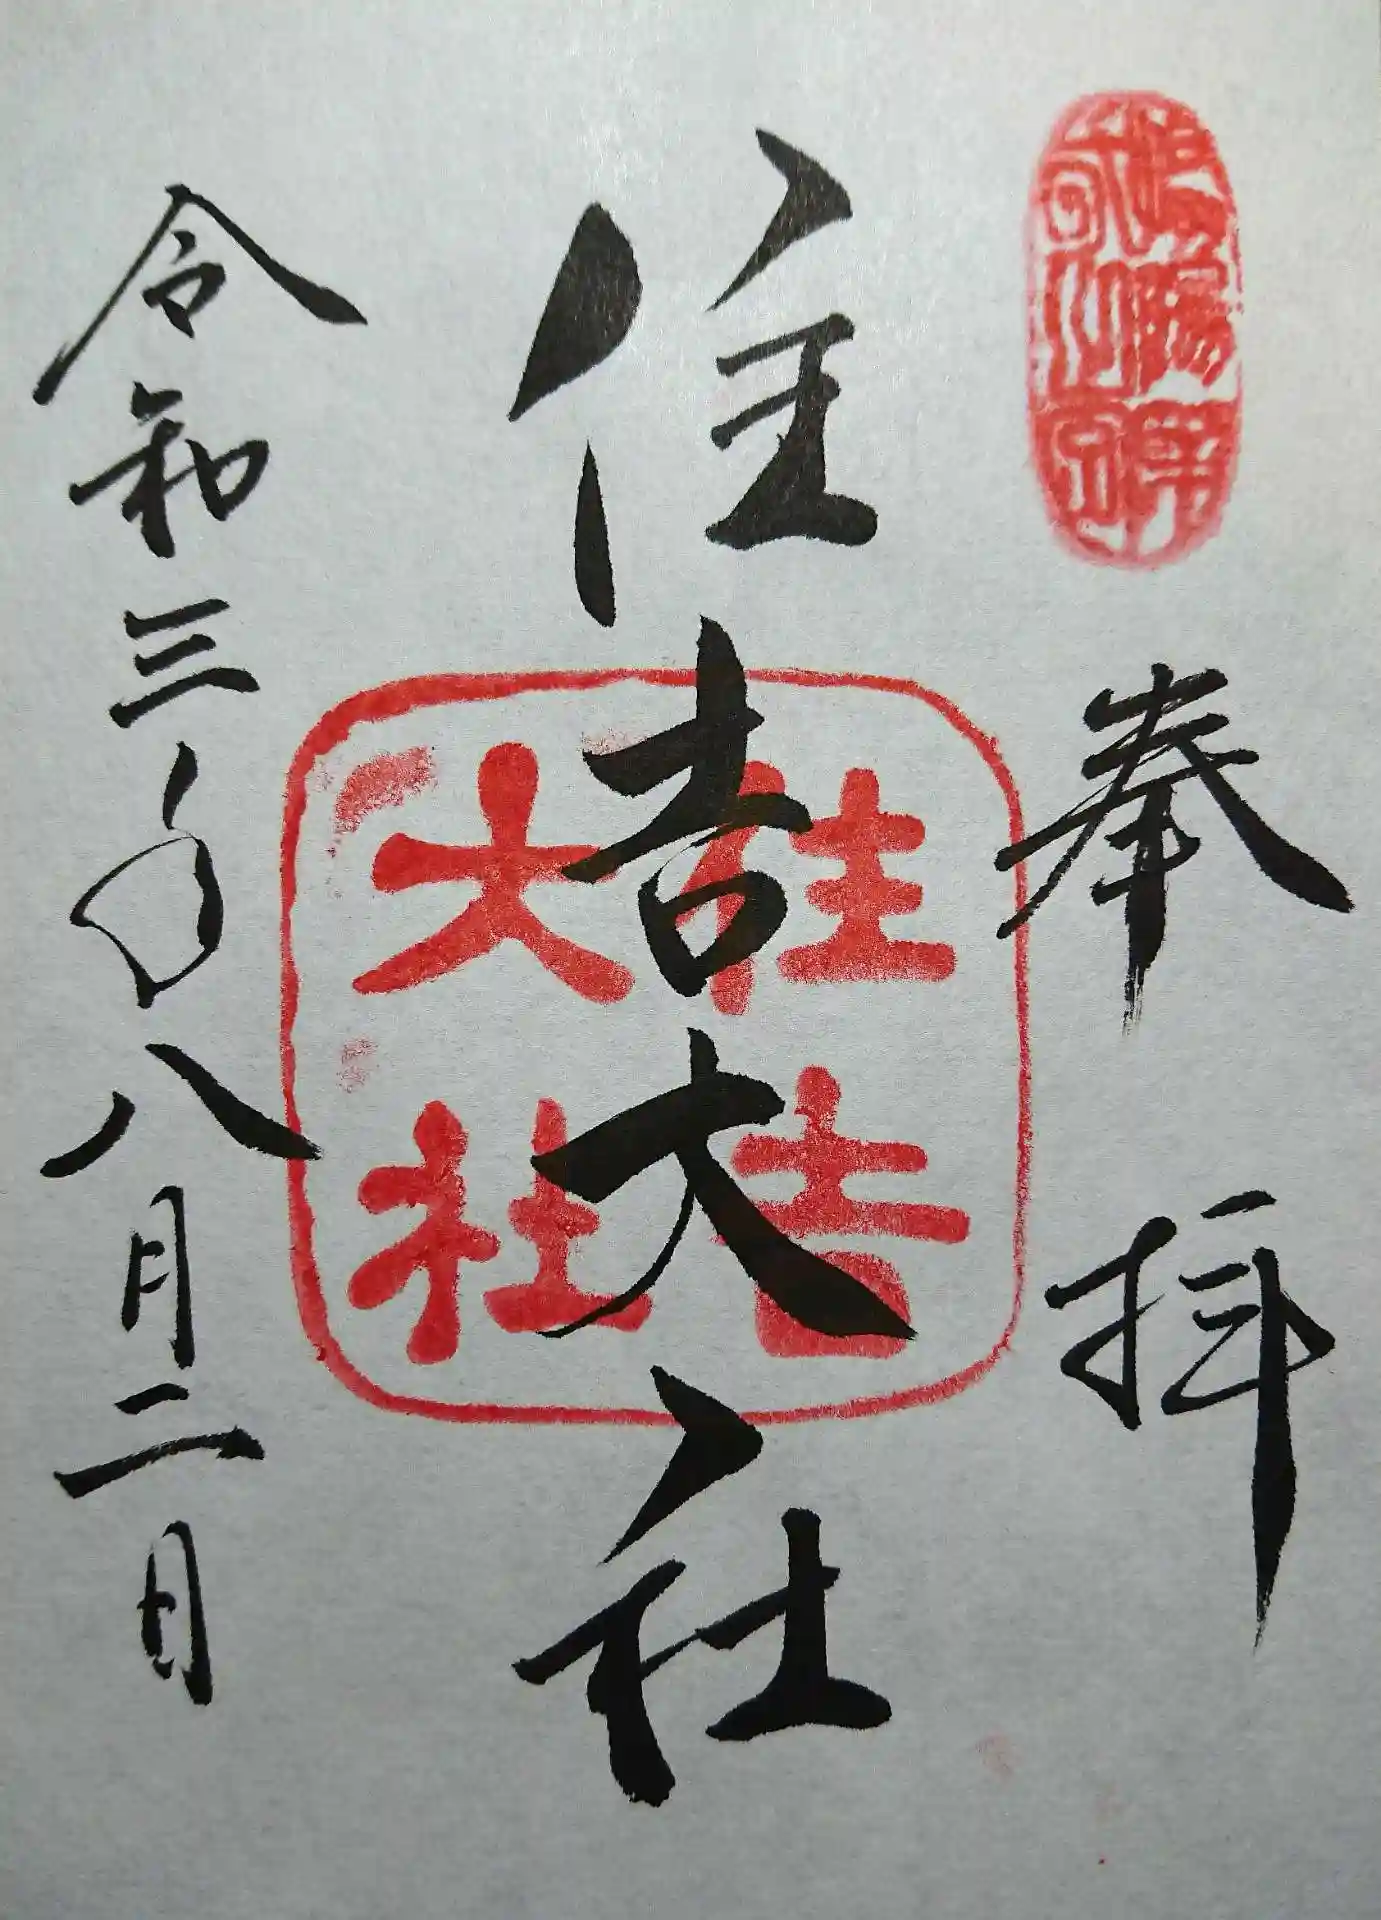 奉拝
住吉大社
住吉
大社
令和三年八月二日